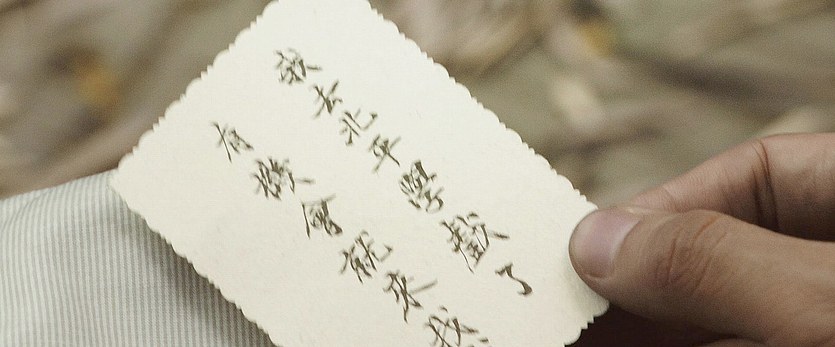 我去北平學戲了
有機會就來